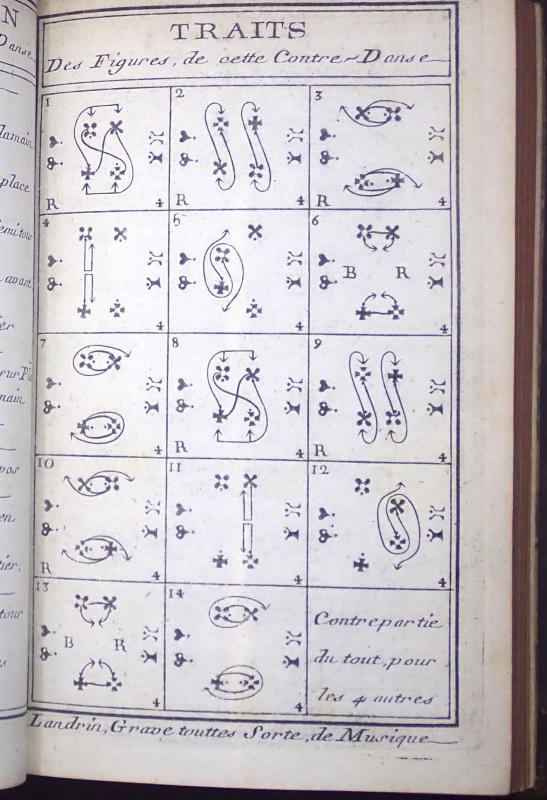 N
Danse
TRAITS
Des Figures, de cette Contre-Danse
lamain
place
emi tour
avant
er
sur Pla
main
pos
en
tier,
tour
s
1
2
3
R
4
R
4
R
4
4
5
6
B R
4
4
4
7
8
9
4
R
4
R
4
10
11
12
R
4
4
4
13
14
B R
4
4
Contrepartie
du tout, pour
les 4 autres
Landrin, Grave touttes Sorte, de Musique